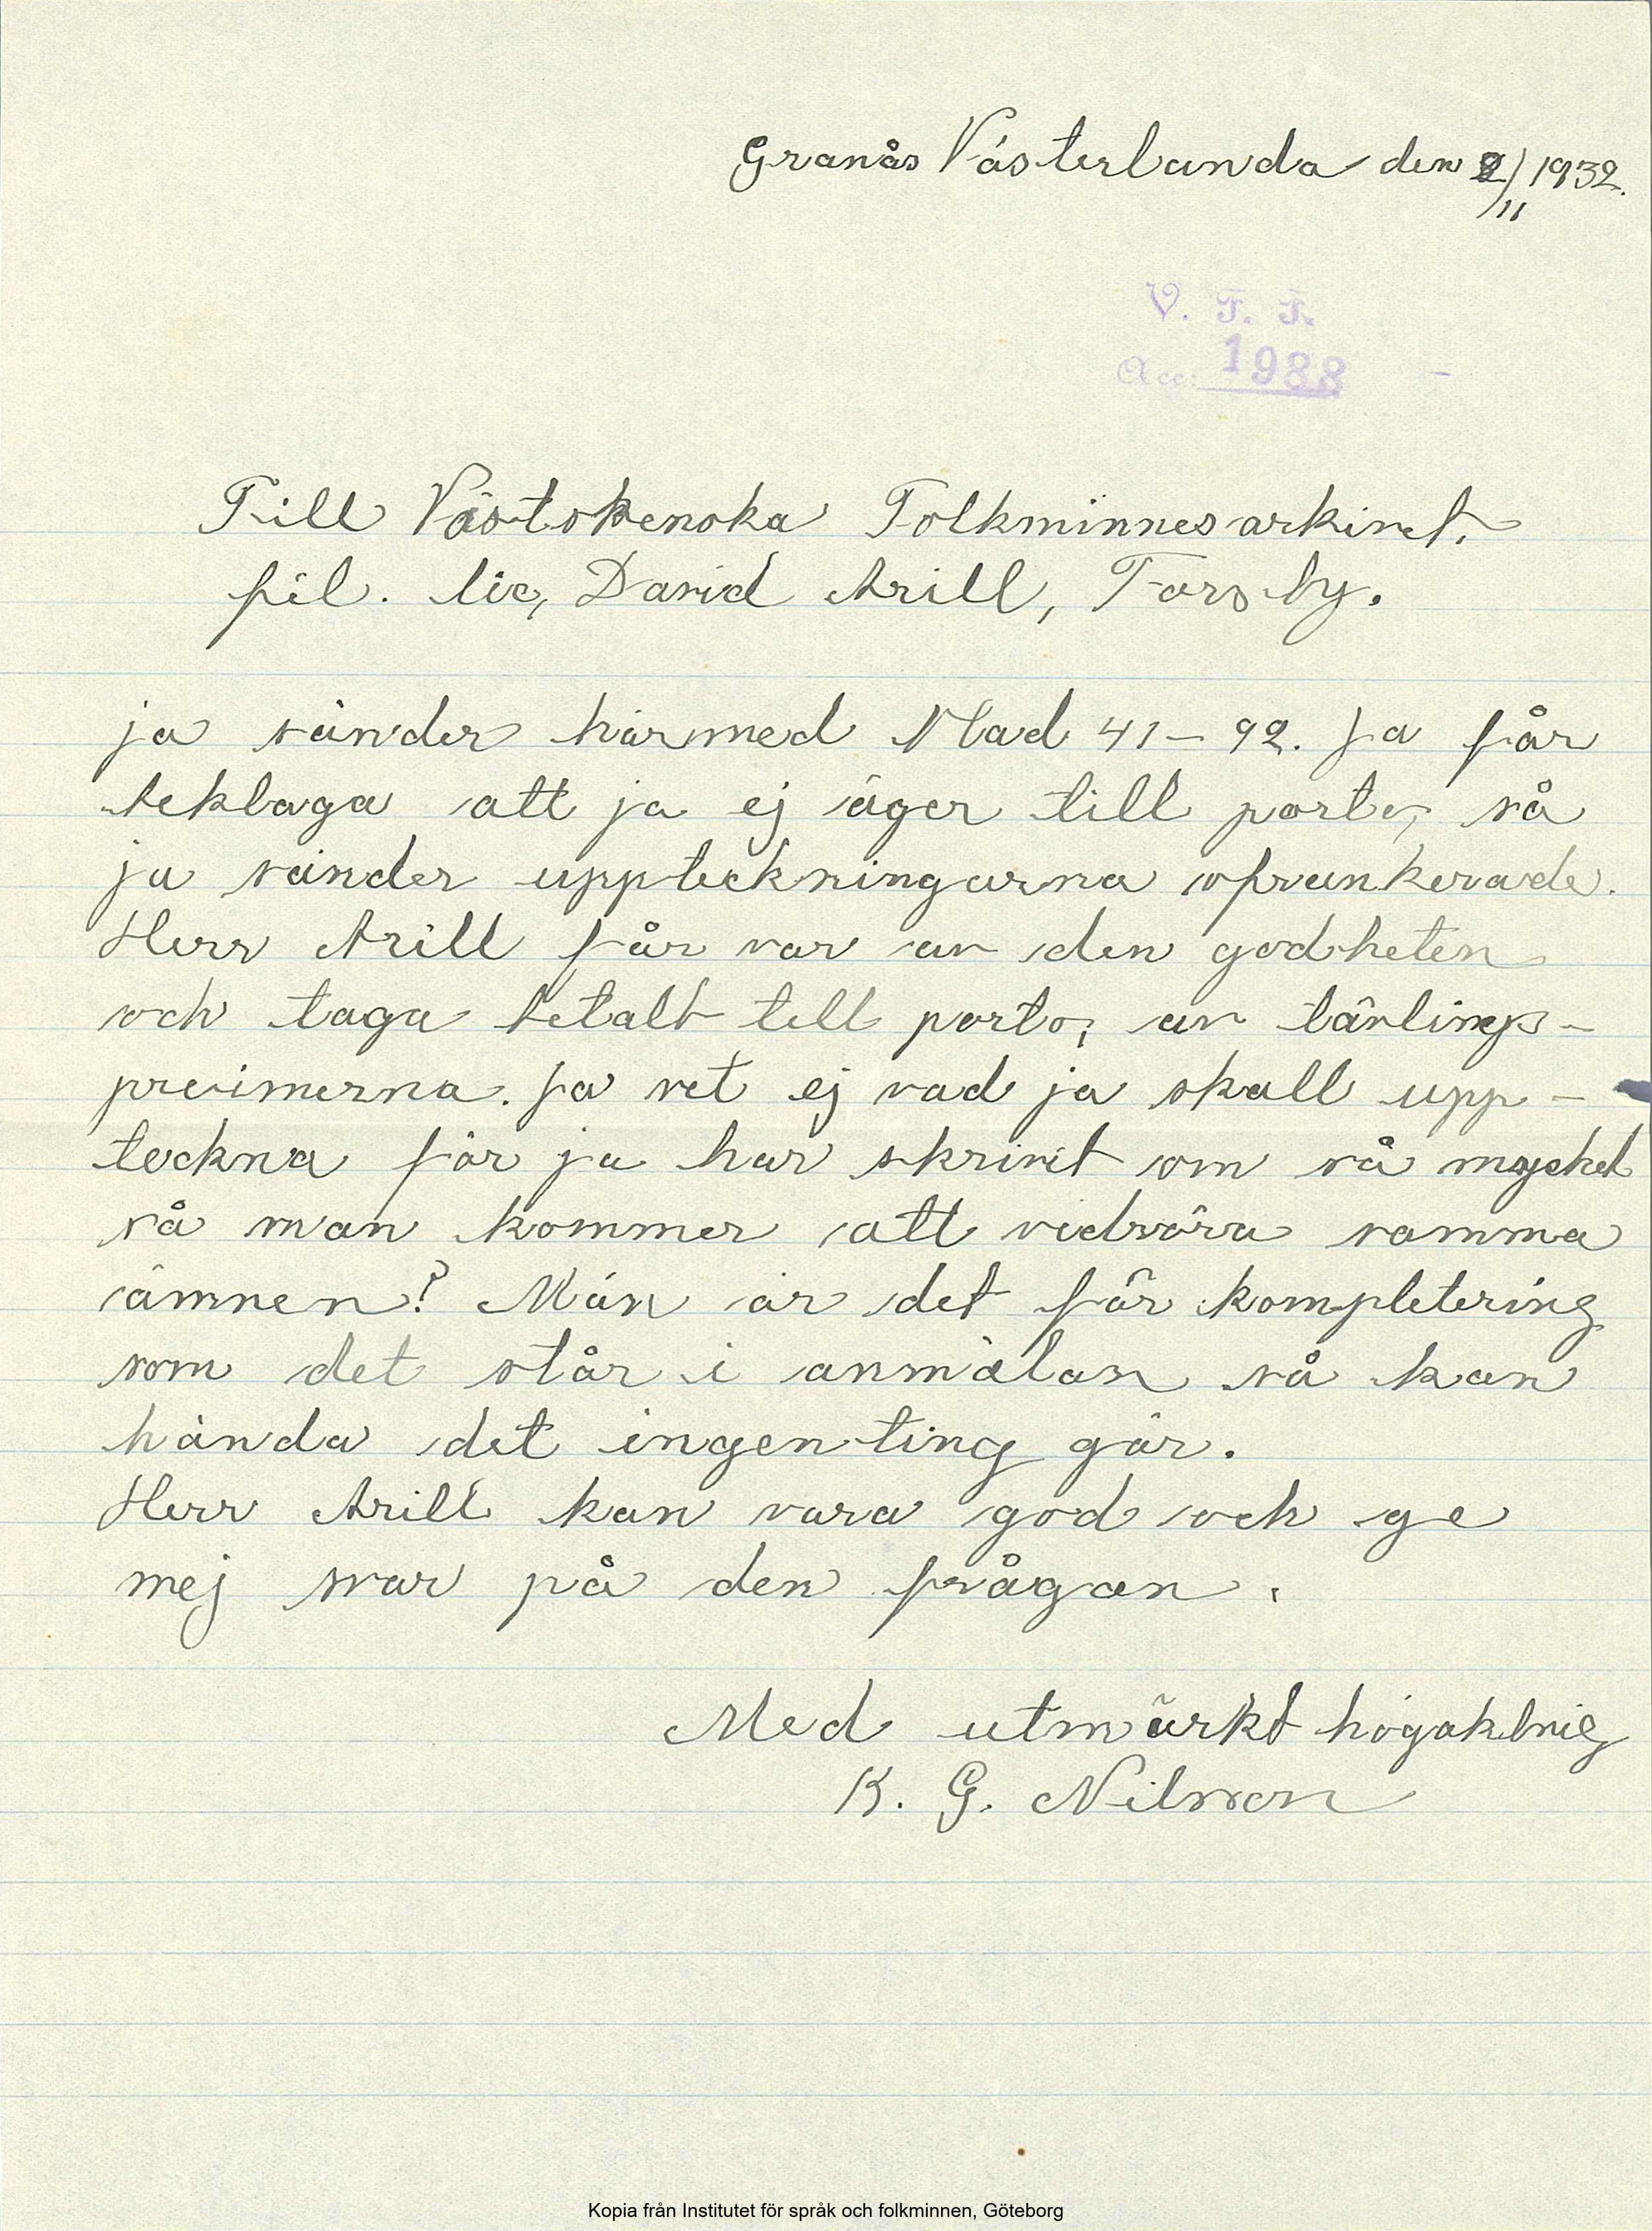 Granås Västerlanda den 2/11 1932.
V. F. F.
Acc: 1988
Till Västsvenska Folkminnesarkivet,
fil. lic, David Arill, Torsby.
ja sänder härmed blad 41–92. ja får
beklaga att ja ej äger till porto, så
ja sänder uppteckningarna ofrankerade.
Herr Arill får var av den godheten
och taga betalt till porto, av tävlings-
preimerna. ja vet ej vad ja skall upp-
teckna för ja har skrivit om så mycket
så man kommer att vidröra samma
ämnen? Män är det för kompletering
som det står i anmälan så kan
hända det ingenting gör.
Herr Arill kan vara god och ge
mej svar på den frågan.
Med utmärkt högaktnig
K. G. Nilsson
Kopia från Institutet för språk och folkminnen, Göteborg